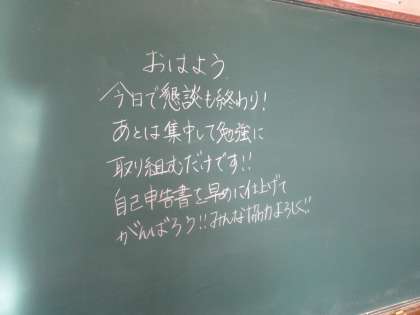 おはよう
今日で懇談も終わり!
あとは集中して勉強に
取り組むだけです!!
自己申告書を早めに仕上げて
がんばろう!!みんな協力よろしく!!